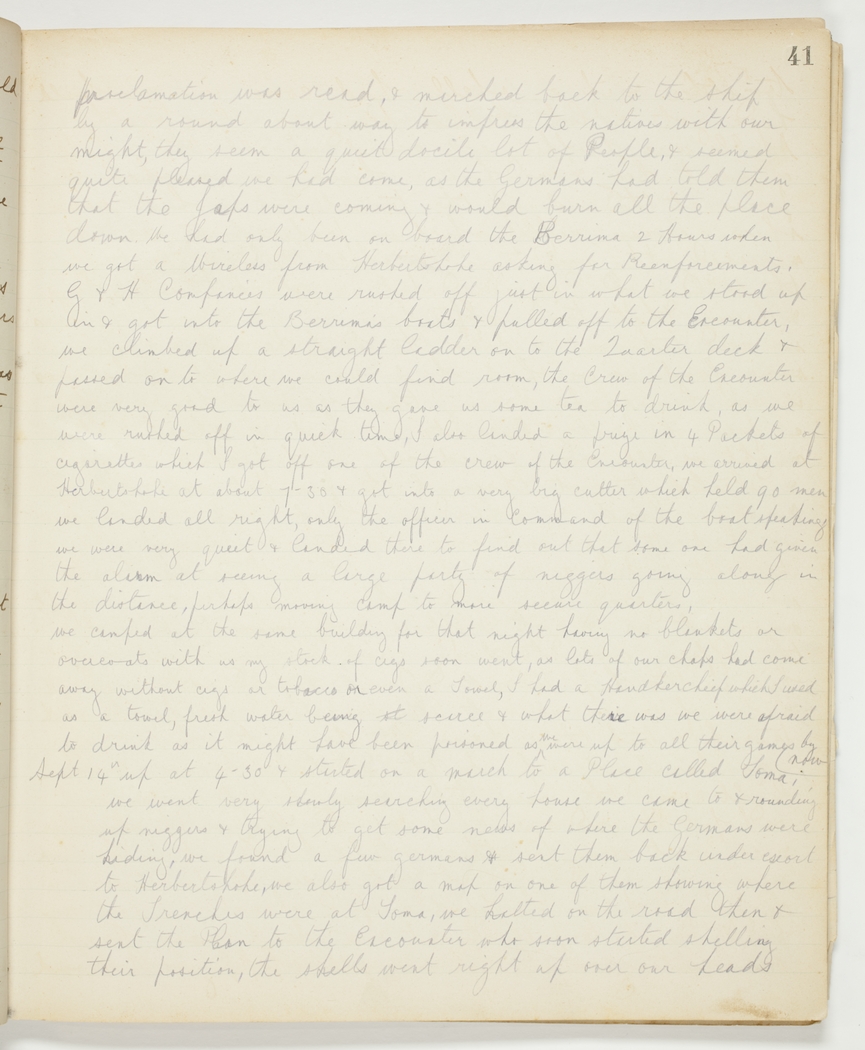 41
proclamation was read, & marched back to the ship
by a round about way to impress the natives with our
might, they seem a quiet docile lot of People, & seemed
quite pleased we had come, as the Germans had told them
that the Japs were coming & would burn all the place
down. We had only been on board the Berrima 2 Hours when
we got a Wireless from Herbertshohe asking for Reenforcements.
G & H Companies were rushed off just in what we stood up
in & got into the Berrimas boats & pulled off to the Encounter,
we climbed up a straight ladder on to the Quarter deck &
passed on to where we could find room, the Crew of the Encounter
were very good to us as they gave us some tea to drink, as we
were rushed off in quick time, I also landed a prize in 4 Packets of
cigarettes which I got off one of the crew of the Encounter, we arrived at
Herbertshohe at about 7-30 & got into a very big cutter which held 90 men
we landed all right, only the officer in Command of the boat speaking,
we were very quiet & landed there to find out that some one had given
the alarm at seeing a large party of niggers going along in
the distance, perhaps moving camp to more secure quarters,
we camped at the same building for that night having no blankets or
overcoats with us my stock of cigs soon went, as lots of our chaps had come
away without cigs or tobacco or even a Towel, I had a Handkerchief which I used
as a towel, fresh water being scarce & what there was we were afraid
to drink as it might have been poisoned as we were up to all their games by
now
Sept 14th up at 4-30 & started on a march to a Place called Toma;
we went very slowly searching every house we came to & rounding
up niggers & trying to get some news of where the Germans were
hiding, we found a few germans & sent them back under escort
to Herbertshohe, we also got a map on one of them showing where
the Trenches were at Toma, we halted on the road then &
sent the Plan to the Encounter who soon started shelling
their position, the shells went right up over our heads